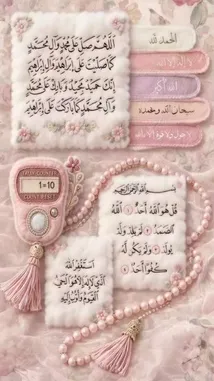 اللهم صل على محمد وآل محمد
كما صليت على إبراهيم وآل إبراهيم
إنك حميد مجيد وبارك على محمد
وآل محمد كما باركت على إبراهيم
الحمد لله
لا إله إلا الله
الله أكبر
سبحان الله وبحمده
لا حول ولا قوة إلا بالله
1=10
بسم الله الرحمن الرحيم
قل هو الله أحد ۝ الله
الصمد ۝ لم يلد ولم
يولد ۝ ولم يكن له
كفوا أحد ۝
أستغفر الله
الذي لا إله إلا هو الحي
القيوم وأتوب إليه